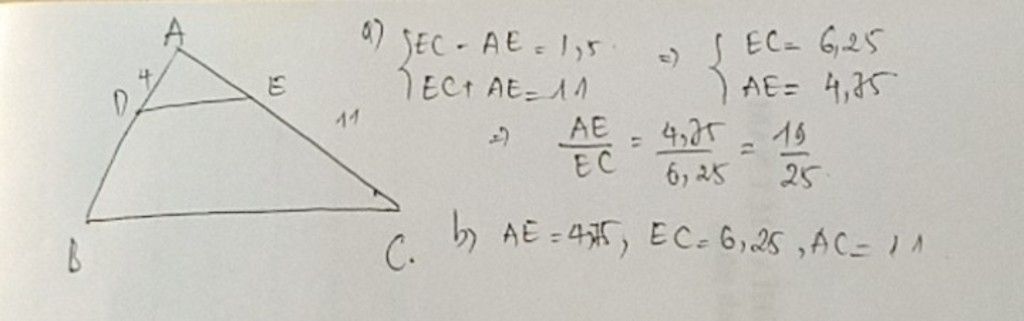 A
4
D
E
11
B
C.
a) { EC - AE = 1,5
EC + AE = 11
=> { EC = 6,25
AE = 4,75
=> AE/EC = 4,75/6,25 = 19/25
b) AE = 4,75, EC = 6,25, AC = 11